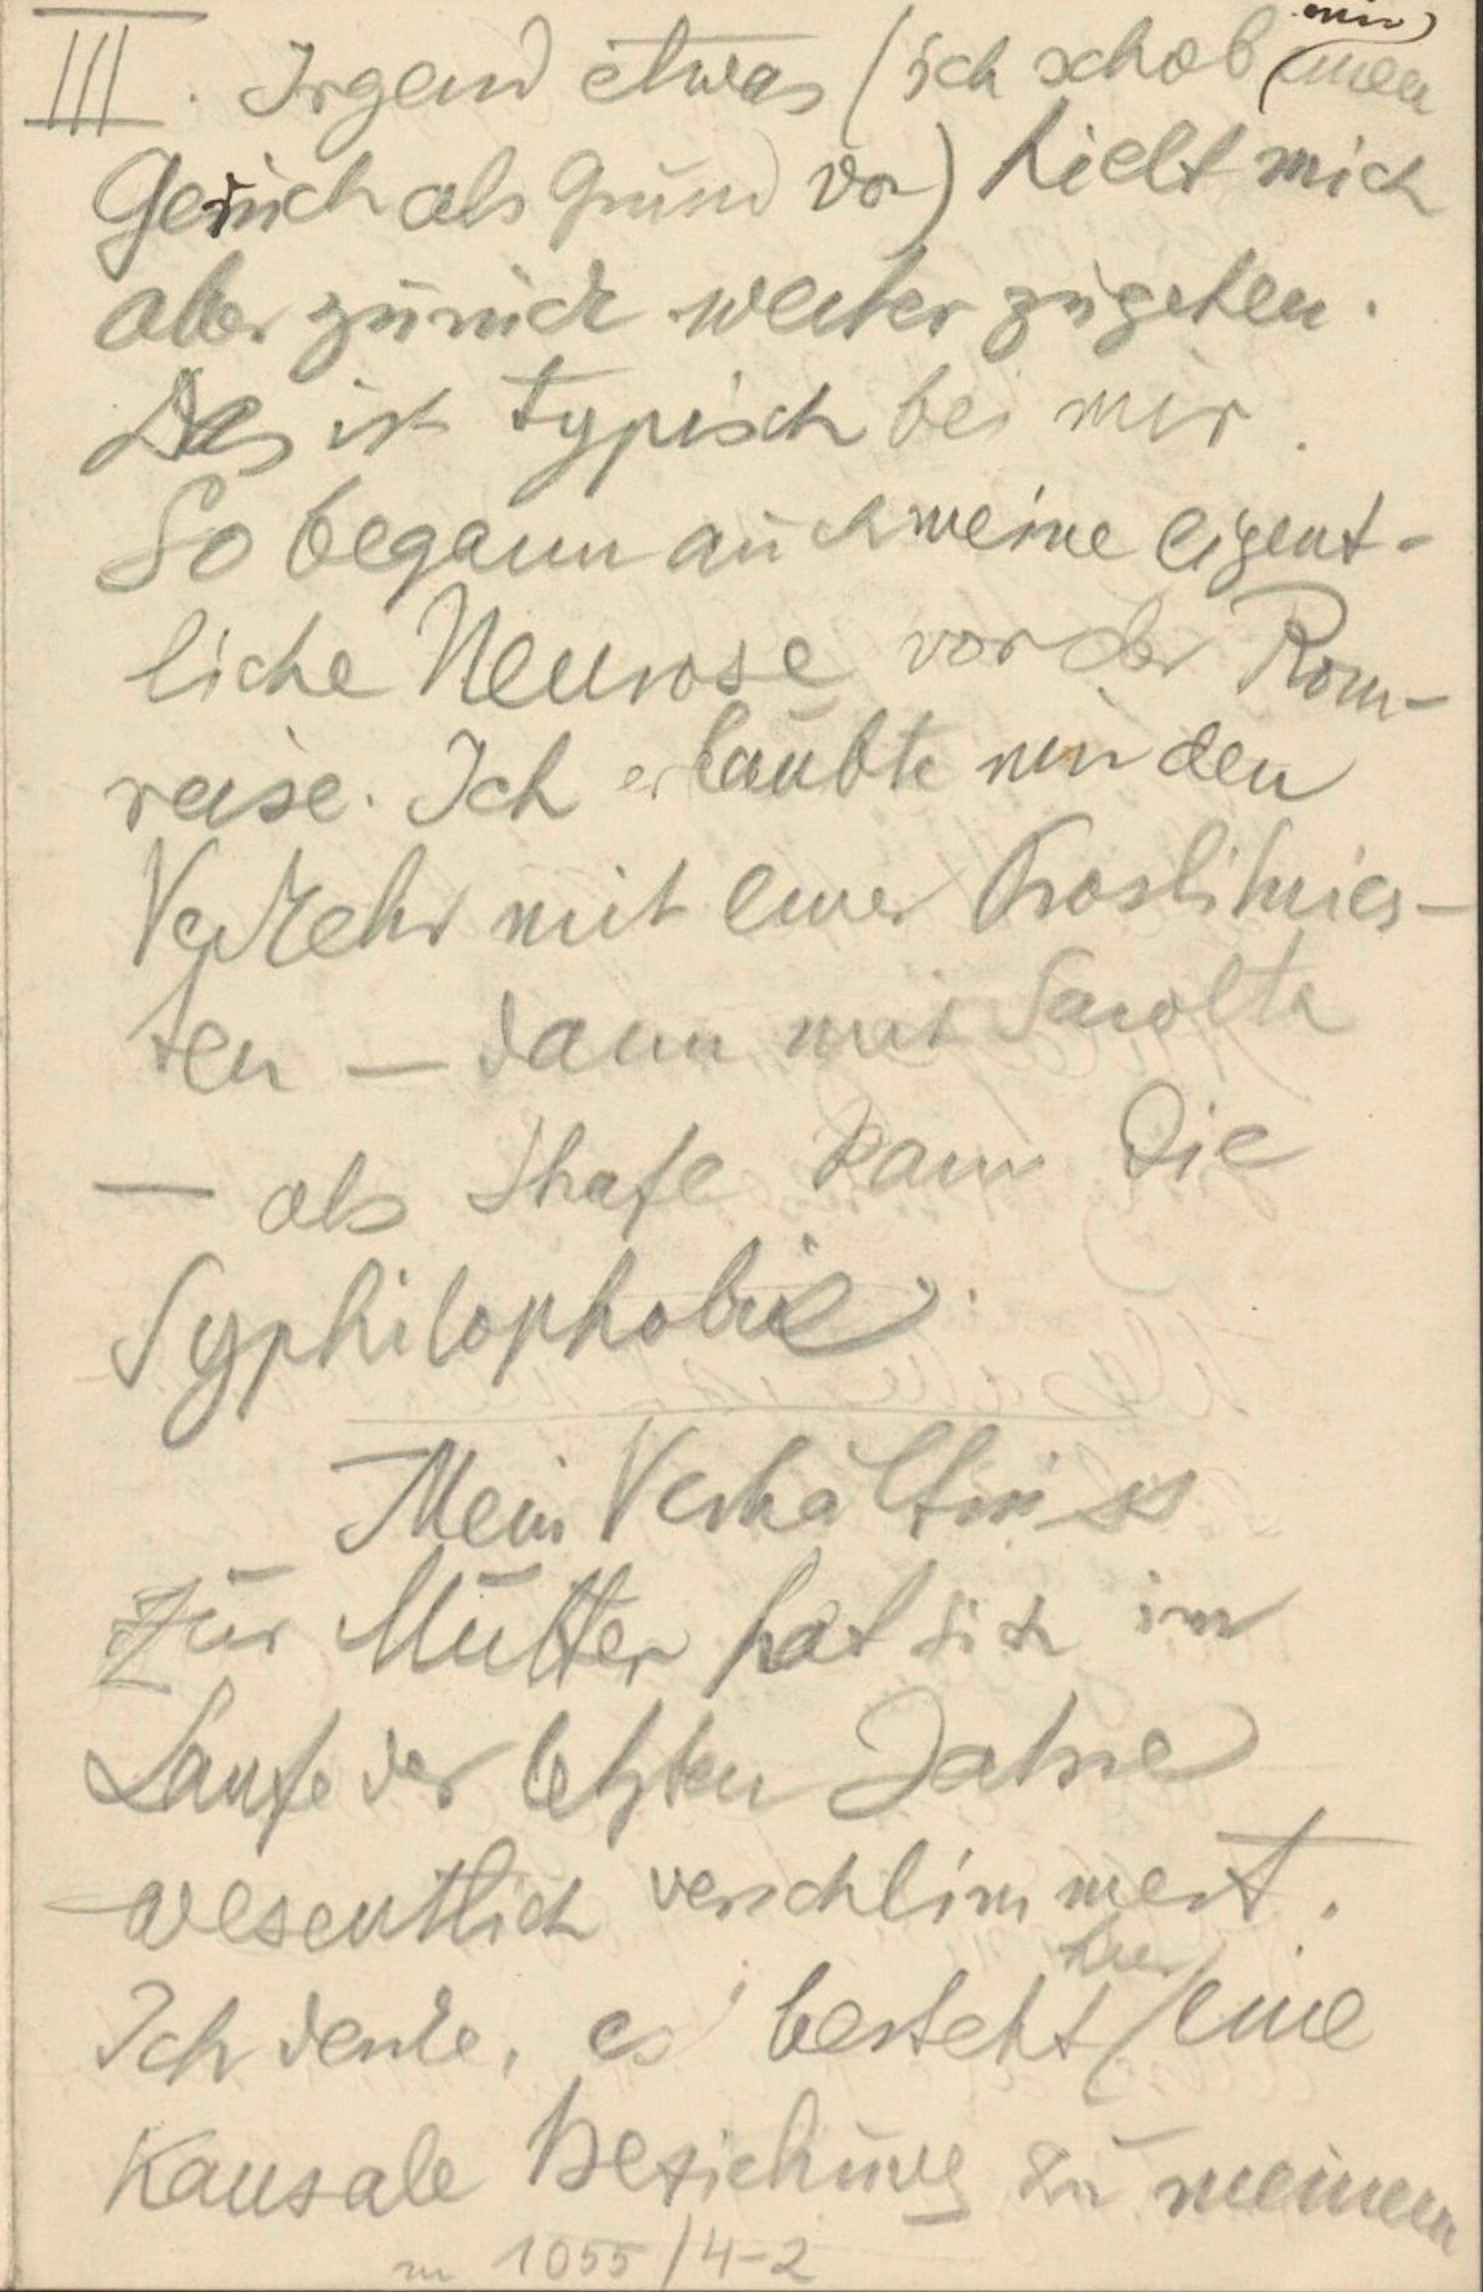 III. Irgend etwas (ich schob mir einen
Geruch als Grund vor) hielt mich
aber zurück weiter zugehen.
Das ist typisch bei mir.
So begann auch meine eigent-
liche Neurose vor der Rom-
reise. Ich erlaubte mir den
Verkehr mit einer Prostituier-
ten — dann mit Sarolta
— als Strafe kam die
Syphilophobie.
Mein Verhältniss
zur Mutter hat sich im
Laufe der letzten Jahre
wesentlich verschlimmert.
Ich denke, es besteht hier eine
Kausale Beziehung zu meinem
1055/4-2